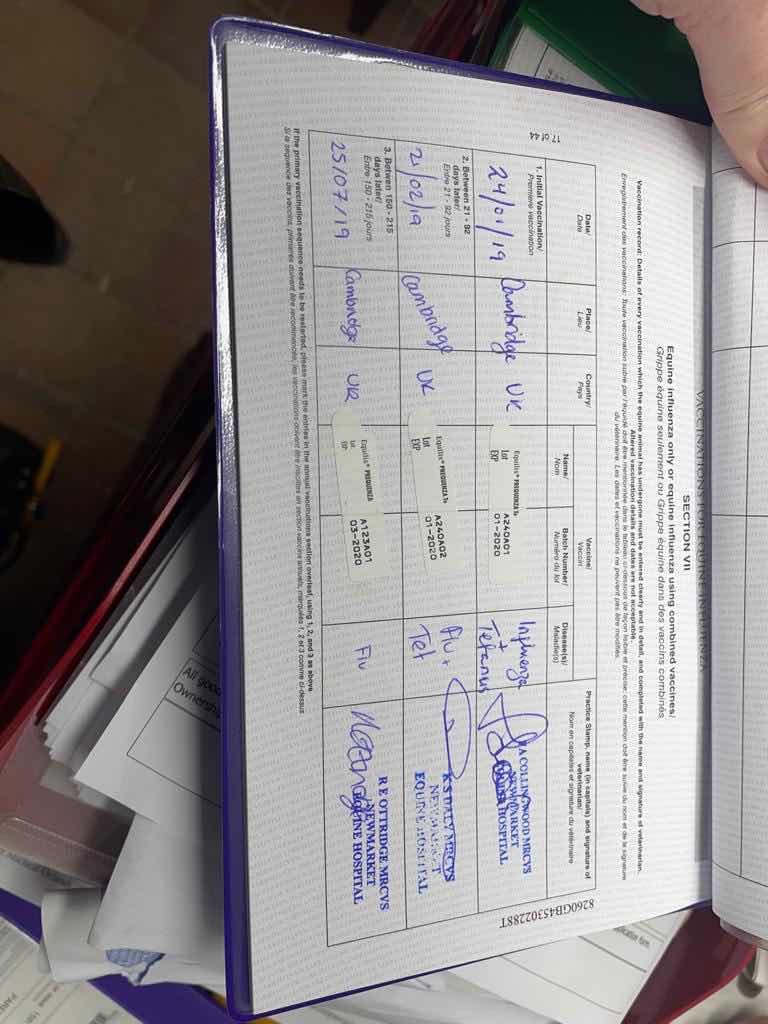 VACCINATIONS FOR EQUINE INFLUENZA
SECTION VII
Equine influenza only or equine influenza using combined vaccines/
Grippe équine seulement ou Grippe équine dans des vaccins combinés
Vaccination record: Details of every vaccination which the equine animal has undergone must be entered clearly and in detail, and completed with the name and signature of veterinarian.
Altered vaccination details and dates are not acceptable.
Enregistrement des vaccinations: Toute vaccination subie par l'équidé doit être mentionnée dans le tableau ci-dessous de façon lisible et précise; cette mention doit être suivie du nom et de la signature
du vétérinaire. Les dates et vaccinations ne peuvent pas être modifiés.
Date/
Date
Place/
Lieu
Country/
Pays
Vaccine/
Vaccin
Name/
Nom
Batch Number/
Numéro du lot
Disease(s)/
Maladie(s)
Practice Stamp, name (in capitals) and signature of
veterinarian/
Nom en capitales et signature du vétérinaire
1. Initial Vaccination/
Première vaccination
24/01/19
Cambridge
UK
Equilis® PREQUENZA Te
Lot A240A01
EXP 01-2020
Influenza
+
Tetanus
A COLLINGWOOD MRCVS
NEWMARKET
HOSPITAL
2. Between 21 - 92
days later/
Entre 21 - 92 jours
21/02/19
Cambridge
UK
Equilis® PREQUENZA Te
Lot A240A02
EXP 01-2020
Flu +
Tet
K S DALY MRCVS
NEWMARKET
EQUINE HOSPITAL
3. Betwen 150 - 215
days later/
Entre 150 - 215 jours
25/07/19
Cambridge
UK
Equilis® PREQUENZA
Lot A123A01
EXP 03-2020
Flu
R E OTTRIDGE MRCVS
NEWMARKET
EQUINE HOSPITAL
If the primary vaccination sequence needs to be restarted, please mark the entries in the annual vaccinations section overleaf, using 1, 2, and 3 as above
Si la séquence des vaccins primaires doivent être recommencés, les vaccinations doivent être inscrites en section vaccins annuels, marquées 1, 2 et 3 comme ci-dessus
17 of 44
8260GB45302288T
All good
Ownership